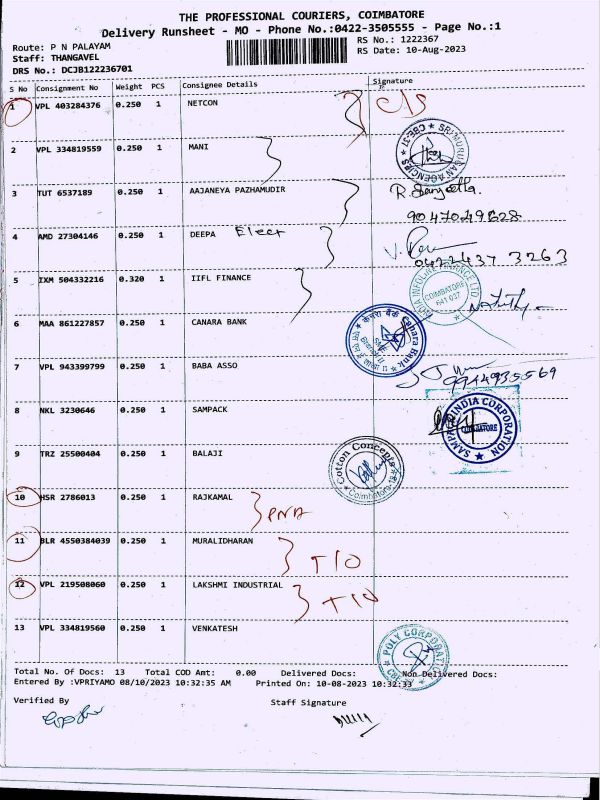 THE PROFESSIONAL COURIERS, COIMBATORE
Delivery Runsheet - MO - Phone No.:0422-3505555 - Page No.:1
Route: P N PALAYAM
RS No.: 1222367
Staff: THANGAVEL
RS Date: 10-Aug-2023
DRS No.: DCJB122236701
S No Consignment No Weight PCS Consignee Details Signature
1 VPL 403284376 0.250 1 NETCON C/S
2 VPL 334819559 0.250 1 MANI
SRI MURUGAN AGENCIES ★ CBE-37 ★
3 TUT 6537189 0.250 1 AAJANEYA PAZHAMUDIR R. Sangeetha.
9047049628
4 AMD 27304146 0.250 1 DEEPA Elect
0422437 3263
5 IXM 504332216 0.320 1 IIFL FINANCE
COIMBATORE 641 037
6 MAA 861227857 0.250 1 CANARA BANK
केनरा बैंक Canara Bank
7 VPL 943399799 0.250 1 BABA ASSO
9944935569
8 NKL 3230646 0.250 1 SAMPACK
INDIA CORPORATION
COIMBATORE
9 TRZ 25500404 0.250 1 BALAJI
Cotton Concepts
10 HSR 2786013 0.250 1 RAJKAMAL PNA
11 BLR 4550384039 0.250 1 MURALIDHARAN T/O
12 VPL 219508060 0.250 1 LAKSHMI INDUSTRIAL T/O
13 VPL 334819560 0.250 1 VENKATESH
POLY CORPORATION
Total No. Of Docs: 13 Total COD Amt: 0.00 Delivered Docs: Non Delivered Docs:
Entered By :VPRIYAMO 08/10/2023 10:32:35 AM Printed On: 10-08-2023 10:32:33
Verified By
Staff Signature